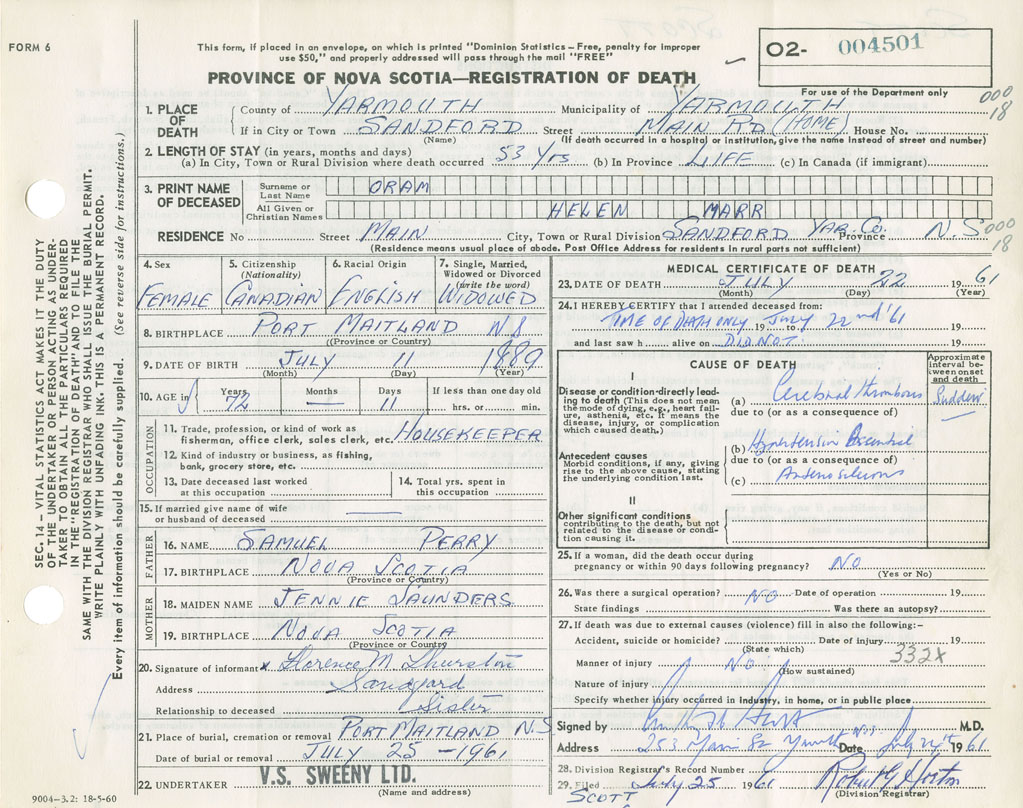 FORM 6
This form, if placed in an envelope, on which is printed "Dominion Statistics – Free, penalty for improper
use $50," and properly addressed will pass through the mail "FREE"
O2- 004501
For use of the Department only
PROVINCE OF NOVA SCOTIA—REGISTRATION OF DEATH
000
18
1. PLACE OF DEATH
County of YARMOUTH Municipality of YARMOUTH
If in City or Town SANDFORD Street MAIN RD (HOME) House No.
(Name) (If death occurred in a hospital or institution, give the name instead of street and number)
2. LENGTH OF STAY (in years, months and days)
(a) In City, Town or Rural Division where death occurred 53 Yrs (b) In Province LIFE (c) In Canada (if immigrant)
3. PRINT NAME OF DECEASED
Surname or Last Name ORAM
All Given or Christian Names HELEN MARR
RESIDENCE No Street MAIN City, Town or Rural Division SANDFORD YAR. Co. Province N.S
000
18
(Residence means usual place of abode. Post Office Address for residents in rural parts not sufficient)
4. Sex FEMALE
5. Citizenship (Nationality) CANADIAN
6. Racial Origin ENGLISH
7. Single, Married, Widowed or Divorced (write the word) WIDOWED
8. BIRTHPLACE PORT MAITLAND N.S
(Province or Country)
9. DATE OF BIRTH JULY 11 1889
(Month) (Day) (Year)
10. AGE in Years 72 Months — Days 11 If less than one day old hrs. or min.
OCCUPATION
11. Trade, profession, or kind of work as
fisherman, office clerk, sales clerk, etc. HOUSEKEEPER
12. Kind of industry or business, as fishing,
bank, grocery store, etc.
13. Date deceased last worked at this occupation
14. Total yrs. spent in this occupation
15. If married give name of wife
or husband of deceased —
FATHER
16. NAME SAMUEL PERRY
17. BIRTHPLACE NOVA SCOTIA
(Province or Country)
MOTHER
18. MAIDEN NAME JENNIE SAUNDERS
19. BIRTHPLACE NOVA SCOTIA
(Province or Country)
20. Signature of informant x Florence M. Thurston
Address Sandford
Relationship to deceased Sister
21. Place of burial, cremation or removal PORT MAITLAND N.S
Date of burial or removal JULY 25 – 1961
22. UNDERTAKER V.S. SWEENY LTD.
(Name and address)
9004–3.2: 18-5-60
MEDICAL CERTIFICATE OF DEATH
23. DATE OF DEATH JULY 22 1961
(Month) (Day) (Year)
24. I HEREBY CERTIFY that I attended deceased from:
TIME OF DEATH ONLY 19 to July 22nd '61 19
and last saw h alive on DID NOT 19
CAUSE OF DEATH
Approximate interval between onset and death
I
Disease or condition directly leading to death (This does not mean the mode of dying, e.g., heart failure, asthenia, etc. It means the disease, injury, or complication which caused death.)
(a) Cerebral Thrombosis Sudden
due to (or as a consequence of)
Antecedent causes
Morbid conditions, if any, giving rise to the above cause, stating the underlying condition last.
(b) Hypertension Essential
due to (or as a consequence of)
(c) Arteriosclerosis
II
Other significant conditions
contributing to the death, but not related to the disease or condition causing it.
25. If a woman, did the death occur during
pregnancy or within 90 days following pregnancy? NO
(Yes or No)
26. Was there a surgical operation? NO Date of operation 19
State findings Was there an autopsy?
27. If death was due to external causes (violence) fill in also the following:–
Accident, suicide or homicide? Date of injury 19
(State which)
332X
Manner of injury NO
(How sustained)
Nature of injury
Specify whether injury occurred in Industry, in home, or in public place
Signed by M.D.
Address 253 Main St Date July 24th 1961
28. Division Registrar's Record Number
29. Filed July 25 1961 Robert G Horton
SCOTT (Division Registrar)
SEC. 14 – VITAL STATISTICS ACT MAKES IT THE DUTY
OF THE UNDERTAKER OR PERSON ACTING AS UNDER-
TAKER TO OBTAIN ALL THE PARTICULARS REQUIRED
IN THE "REGISTRATION OF DEATH" AND TO FILE THE
SAME WITH THE DIVISION REGISTRAR WHO SHALL ISSUE THE BURIAL PERMIT.
WRITE PLAINLY WITH UNFADING INK. THIS IS A PERMANENT RECORD.
Every item of information should be carefully supplied. (See reverse side for instructions.)